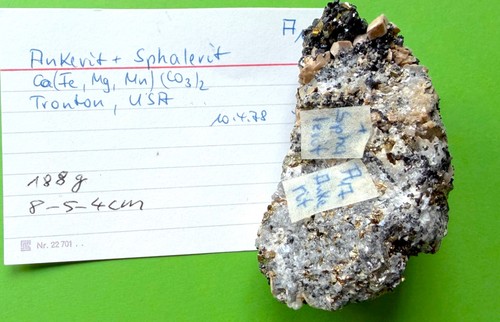 A
Ankerit + Sphalerit
Ca(Fe, Mg, Mn) (CO3)2
Tronton, USA
10.4.78
188 g
8-5-4cm
Nr. 22 701
+
Spha
lerit
A17
Anke
rit